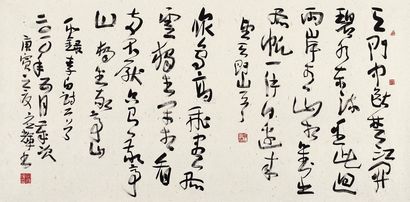 天門中斷楚江開
碧水東流至此迴
兩岸青山相對出
孤帆一片日邊來
望天門山
眾鳥高飛盡孤
雲獨去閒相看
兩不厭只有敬亭
山 獨坐敬亭山
錄李白詩二首
二〇一〇年五月歲次
庚寅之夏 書